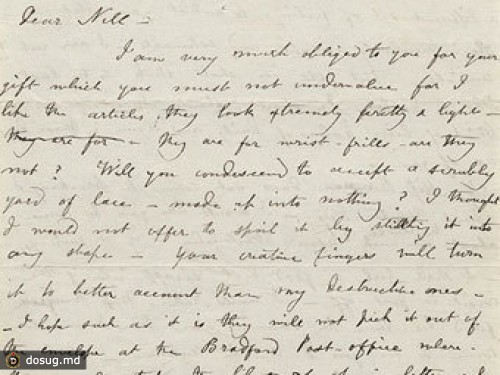 Dear Nell –
I am very much obliged to you for your
gift which you must not undervalue for I
like the articles, they look extremely pretty & light –
they are for – they are for wrist-frills – are they
not? Will you condescend to accept a scrubby
yard of lace – made up into nothing? I thought
I would not offer to spoil it by sticking it into
any shape – your creative fingers will turn
it to better account than my Destructive ones –
– I hope such as it is they will not pick it out of
the envelope at the Bradford Post-office where-
dosug.md